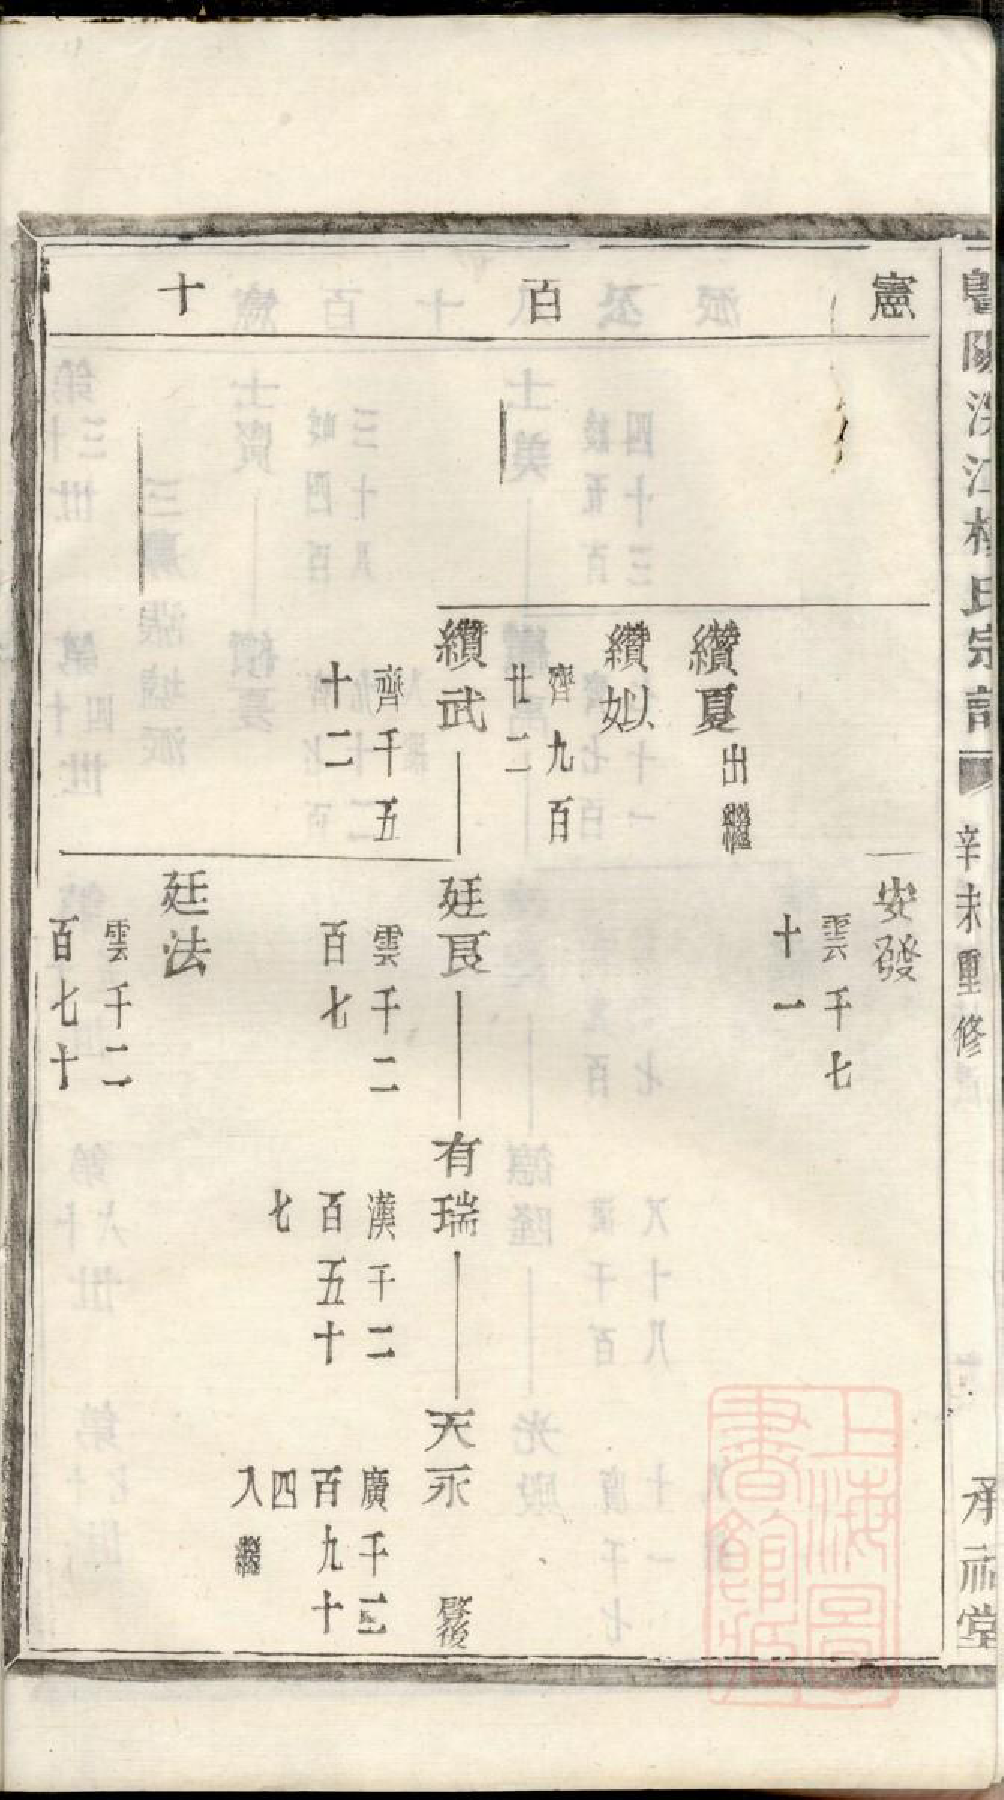 江楊氏宗譜
辛未重修
承祉堂
憲百十
安發
雲千七
十一
纘夏
出繼
纘姒
齊九百
廿二
纘武
齊千五
十二
廷良
雲千二
百七
有瑞
漢千二
百五十
七
天永
啓後
廣千二
百九十
四
入繼
廷法
雲千二
百七十
上海圖
書館藏